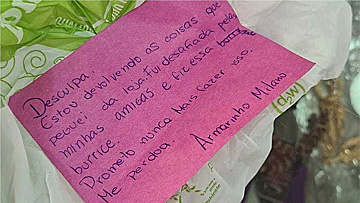 Desculpa.
Estou devolvendo as coisas que
peguei da loja. Fui desafiada pelas
minhas amigas e fiz essa
burrice.
Prometo nunca mais fazer isso.
Me perdoa.
Armarinho Milano